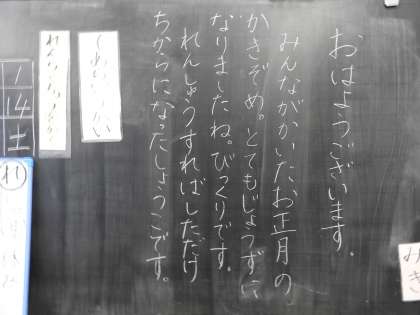 おはようございます。
みんながかいたお正月の
かきぞめ。とてもじょうずに
なりましたね。びっくりです。
れんしゅうすればしただけ
ちからになったしょうこです。
1
14
土
みき